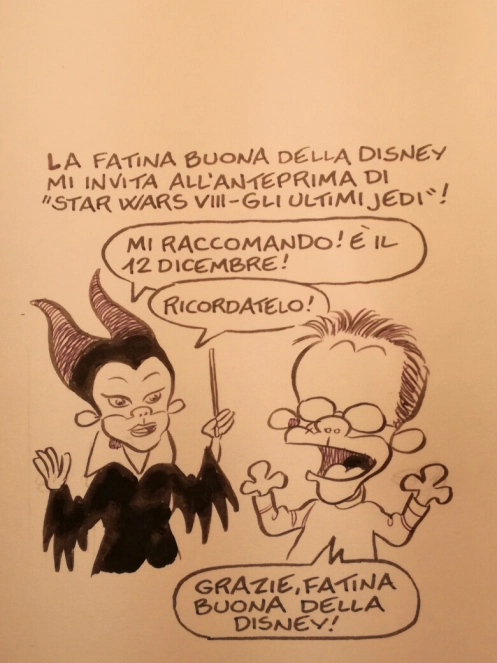 LA FATINA BUONA DELLA DISNEY
MI INVITA ALL'ANTEPRIMA DI
"STAR WARS VIII - GLI ULTIMI JEDI"!
MI RACCOMANDO! È IL
12 DICEMBRE!
RICORDATELO!
GRAZIE, FATINA
BUONA DELLA
DISNEY!